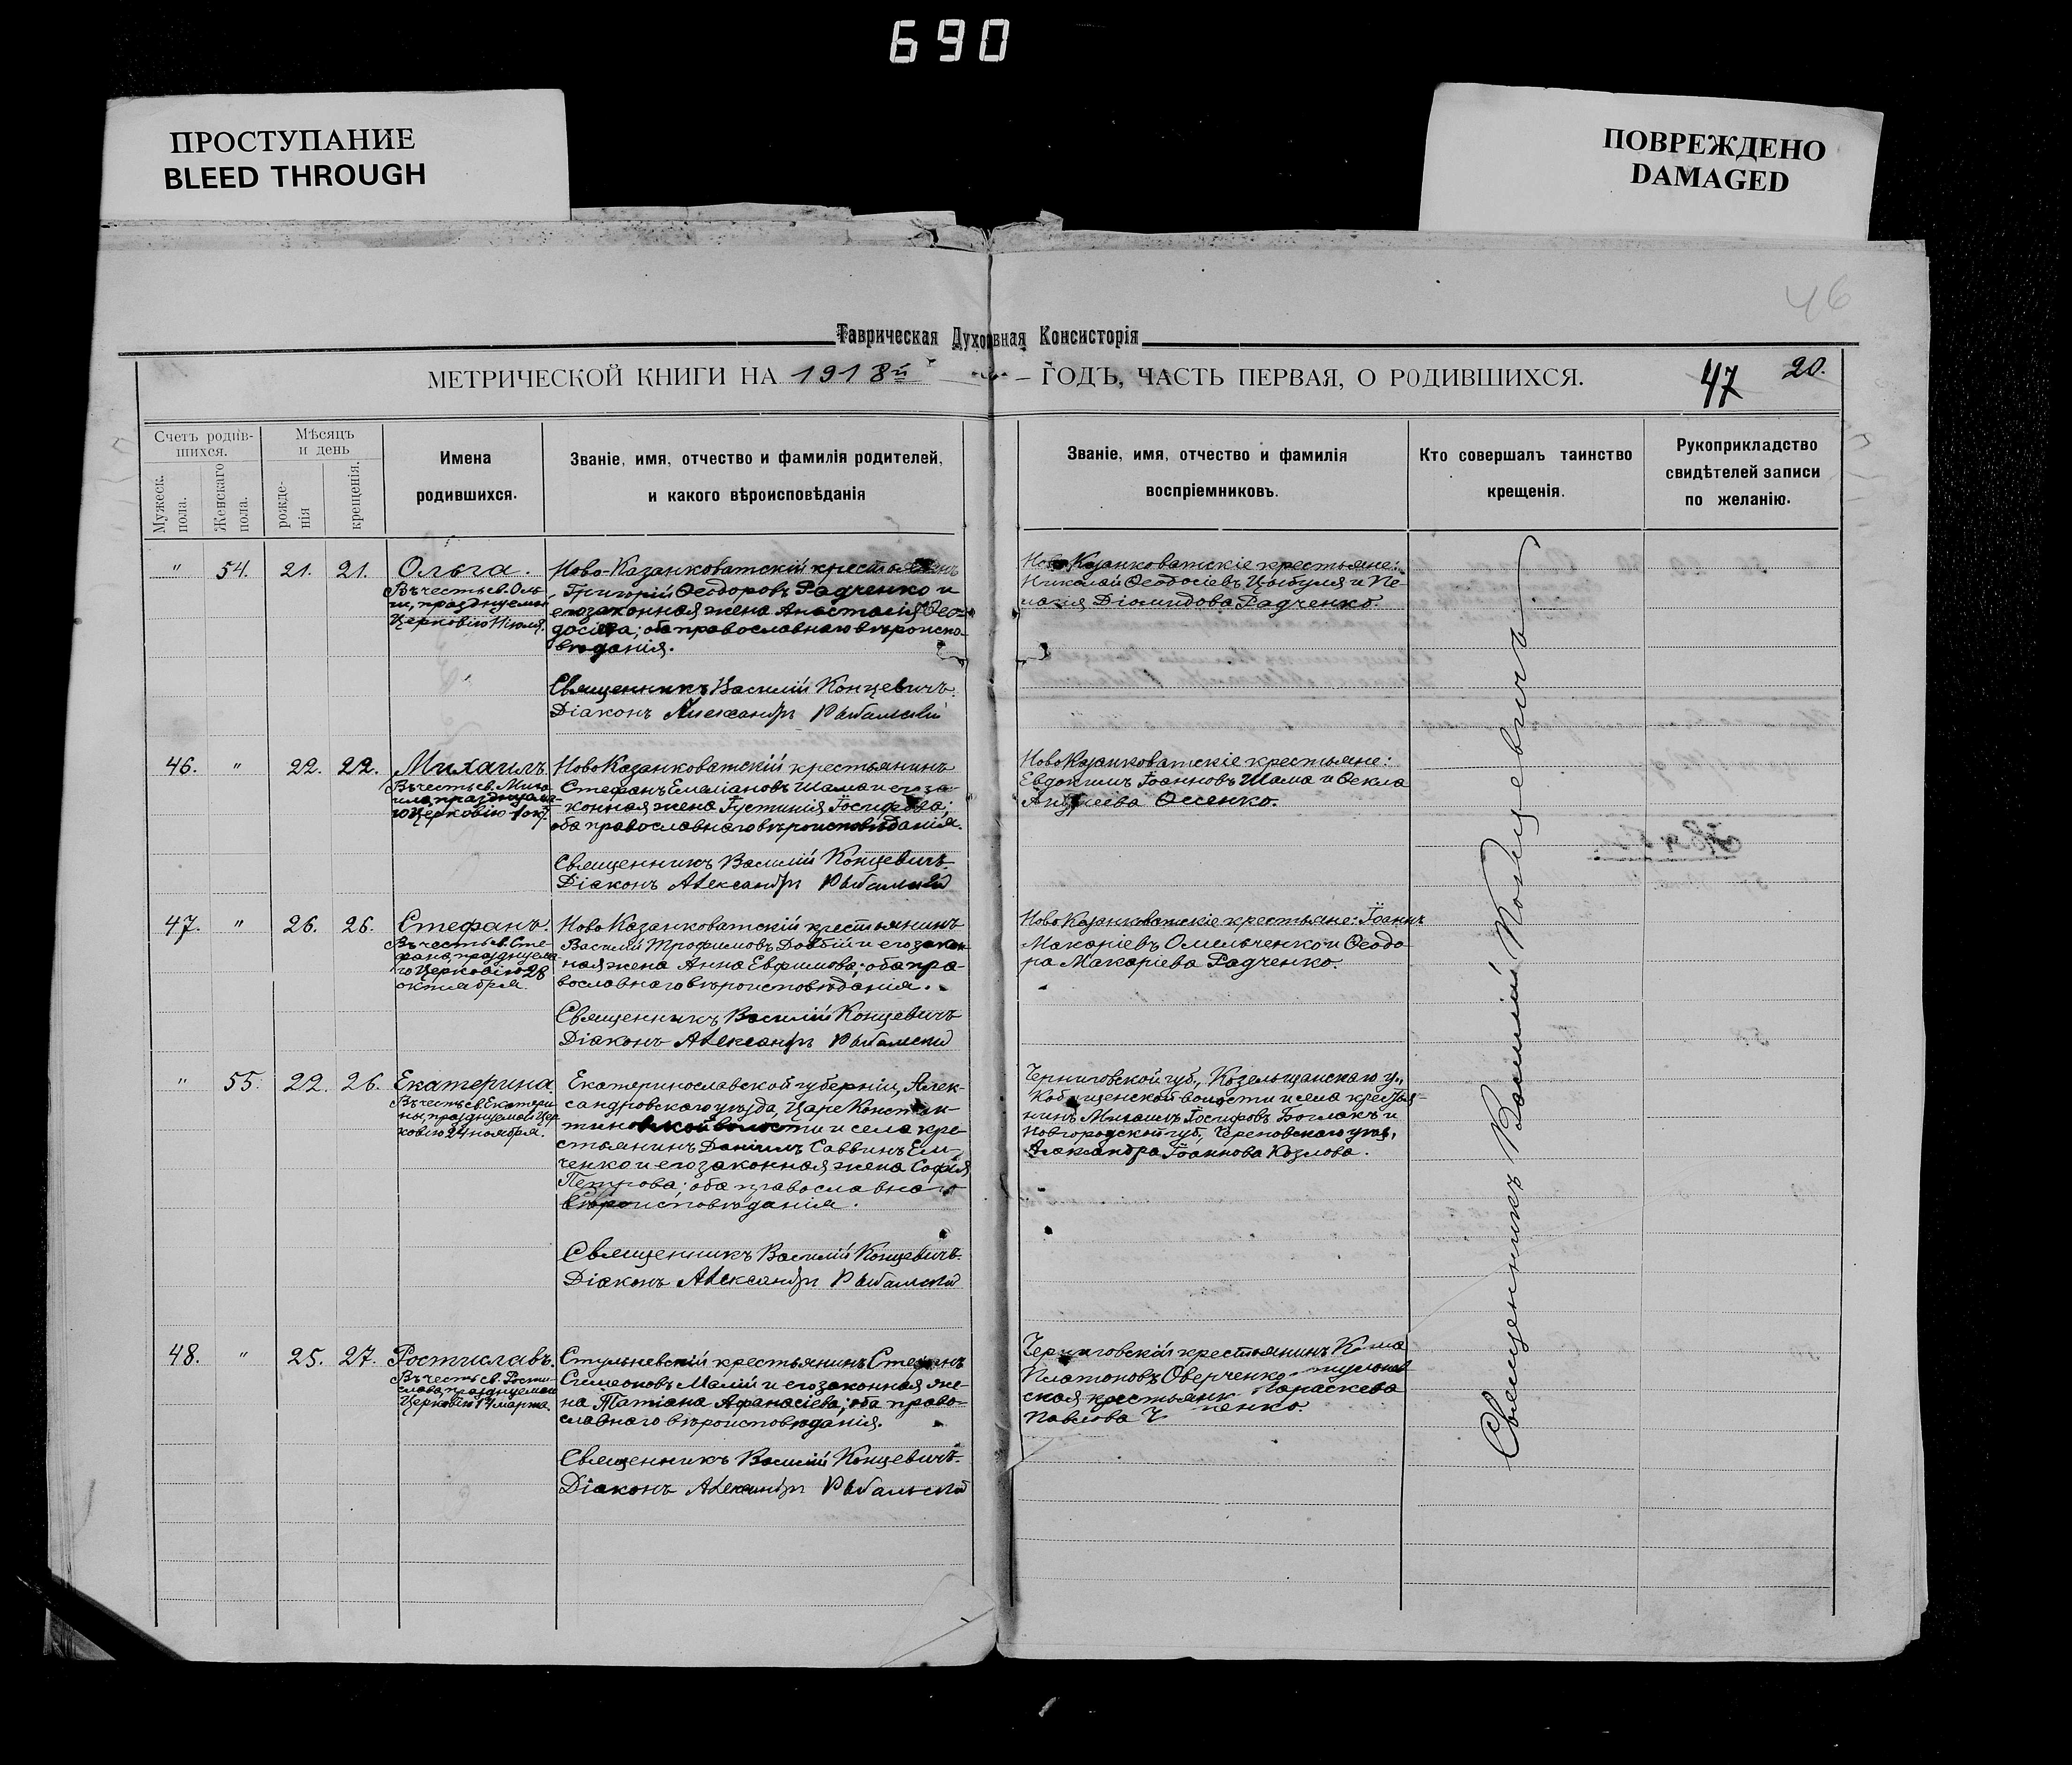 690
ПРОСТУПАНИЕ
BLEED THROUGH
ПОВРЕЖДЕНО
DAMAGED
46
Таврическая Духовная Консисторія
МЕТРИЧЕСКОЙ КНИГИ НА 1918й ГОДЪ, ЧАСТЬ ПЕРВАЯ, О РОДИВШИХСЯ.
47
20.
Счетъ родив-
шихся.
Мужеск.
пола.
Женскаго
пола.
Мѣсяцъ
и день
рожде-
нія
крещенія.
Имена
родившихся.
Званіе, имя, отчество и фамилія родителей,
и какого вѣроисповѣданія
Званіе, имя, отчество и фамилія
воспріемниковъ.
Кто совершалъ таинство
крещенія.
Рукоприкладство
свидѣтелей записи
по желанію.
" 54. 21. 21.
Ольга.
Въ честь св. Оль-
ги, празднуемой
Церковію 11 іюля.
Ново-Казанковатскій крестьянинъ
Григорій Ѳеодоровъ Радченко и
его законная жена Анастасія Ѳео-
досіева; оба православнаго вѣроиспо-
вѣданія.
Священникъ Василій Концевичъ.
Діаконъ Александръ Рыбальскій
Ново Казанковатскіе крестьяне:
Николай Ѳеодосіевъ Цыбуля и Пе-
лагія Діомидова Радченко.
46. " 22. 22.
Михаилъ
Въ честь св. Миха-
ила, празднуема-
го Церковію 1 окт.
Ново Казанковатскій крестьянинъ
Стефанъ Емеліановъ Шама и его за-
конная жена Іустинія Іосифова;
оба православнаго вѣроисповѣданія.
Священникъ Василій Концевичъ
Діаконъ Александръ Рыбальскій
Ново Казанковатскіе крестьяне:
Евдокимъ Іоанновъ Шама и Ѳекла
Андреева Осенко.
47. " 26. 26.
Стефанъ.
Въ честь св. Сте-
фана, празднуема-
го Церковію 28
октября.
Ново Казанковатскій крестьянинъ
Василій Трофимовъ Довбій и его закон-
ная жена Анна Евфимова; оба пра-
вославнаго вѣроисповѣданія.
Священникъ Василій Концевичъ
Діаконъ Александръ Рыбальскій
Ново Казанковатскіе крестьяне: Іоаннъ
Макаріевъ Омельченко и Ѳеодо-
ра Макаріева Радченко.
" 55. 22. 26.
Екатерина
Въ честь св. Екатери-
ны, празднуемой Цер-
ковію 24 ноября.
Екатеринославской губерніи, Алек-
сандровскаго уѣзда, Царе Констан-
тиновской волости и села кре-
стьянинъ Даніилъ Саввинъ Ем-
ченко и его законная жена Софія
Петрова; оба православнаго
вѣроисповѣданія.
Священникъ Василій Концевичъ.
Діаконъ Александръ Рыбальскій
Черниговской губ., Козельщанскаго у.,
волости и села крестья-
нинъ Михаилъ Іосифовъ Боглакъ и
Новгородской губ., Череповскаго уѣзд.
Александра Іоаннова Козлова.
48. " 25. 27.
Ростиславъ.
Въ честь св. Рости-
слава, празднуемаго
Церковію 14 марта.
Стульневскій крестьянинъ Стефанъ
Симеоновъ Малій и его законная же-
на Татіана Афанасіева; оба право-
славнаго вѣроисповѣданія.
Священникъ Василій Концевичъ.
Діаконъ Александръ Рыбальскій
Черниговскій крестьянинъ
Платоновъ Оверченко
ская крестьянк Параскева
Павлова
Священникъ Василій Концевичъ